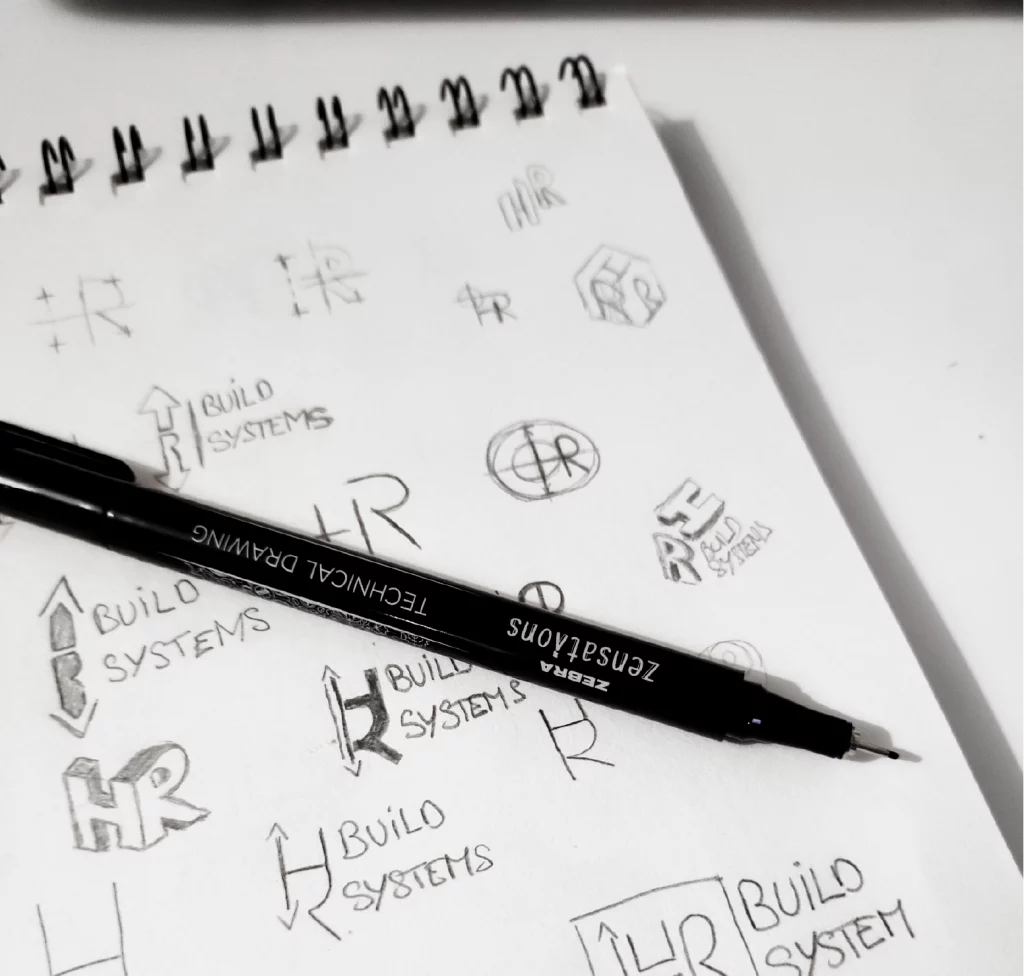 HR
HR
HR
HR
HR
R
BUiLD
SYSTEMS
R
HR
H
R
BUiLD
SYSTEMS
TECHNICAL DRAWING
zensations
ZEBRA
BUiLD
SYSTEMS
HR
BUILD
SYSTEMS
HR
HR
HR
BUiLD
SYSTEMS
H
HR
BUiLD
SYSTEM